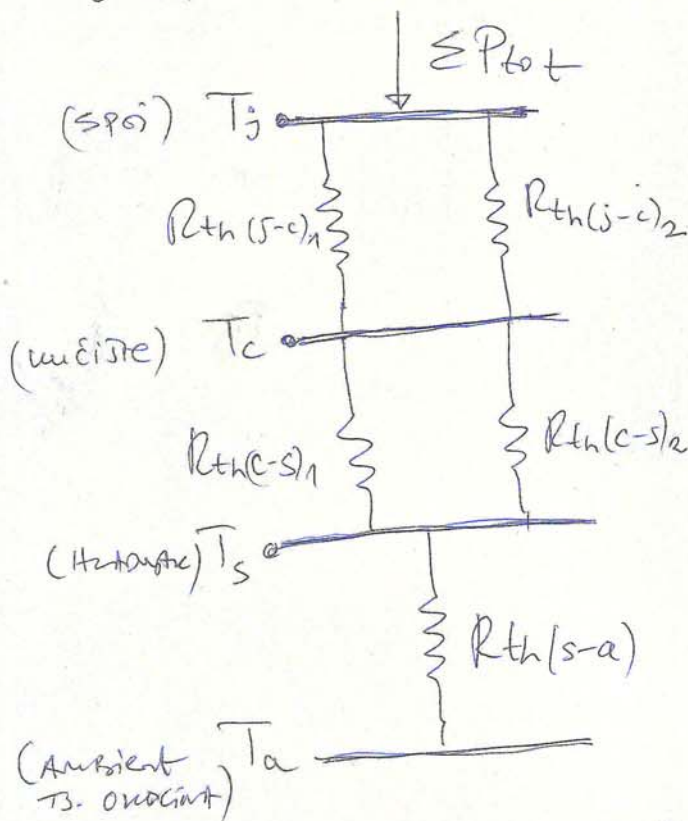 ΣPtot
(spoj) Tj
Rth(j-c)1
Rth(j-c)2
(kućište) Tc
Rth(c-s)1
Rth(c-s)2
(Hladnjak) Ts
Rth(s-a)
(Ambient Ta
tj. okolina)